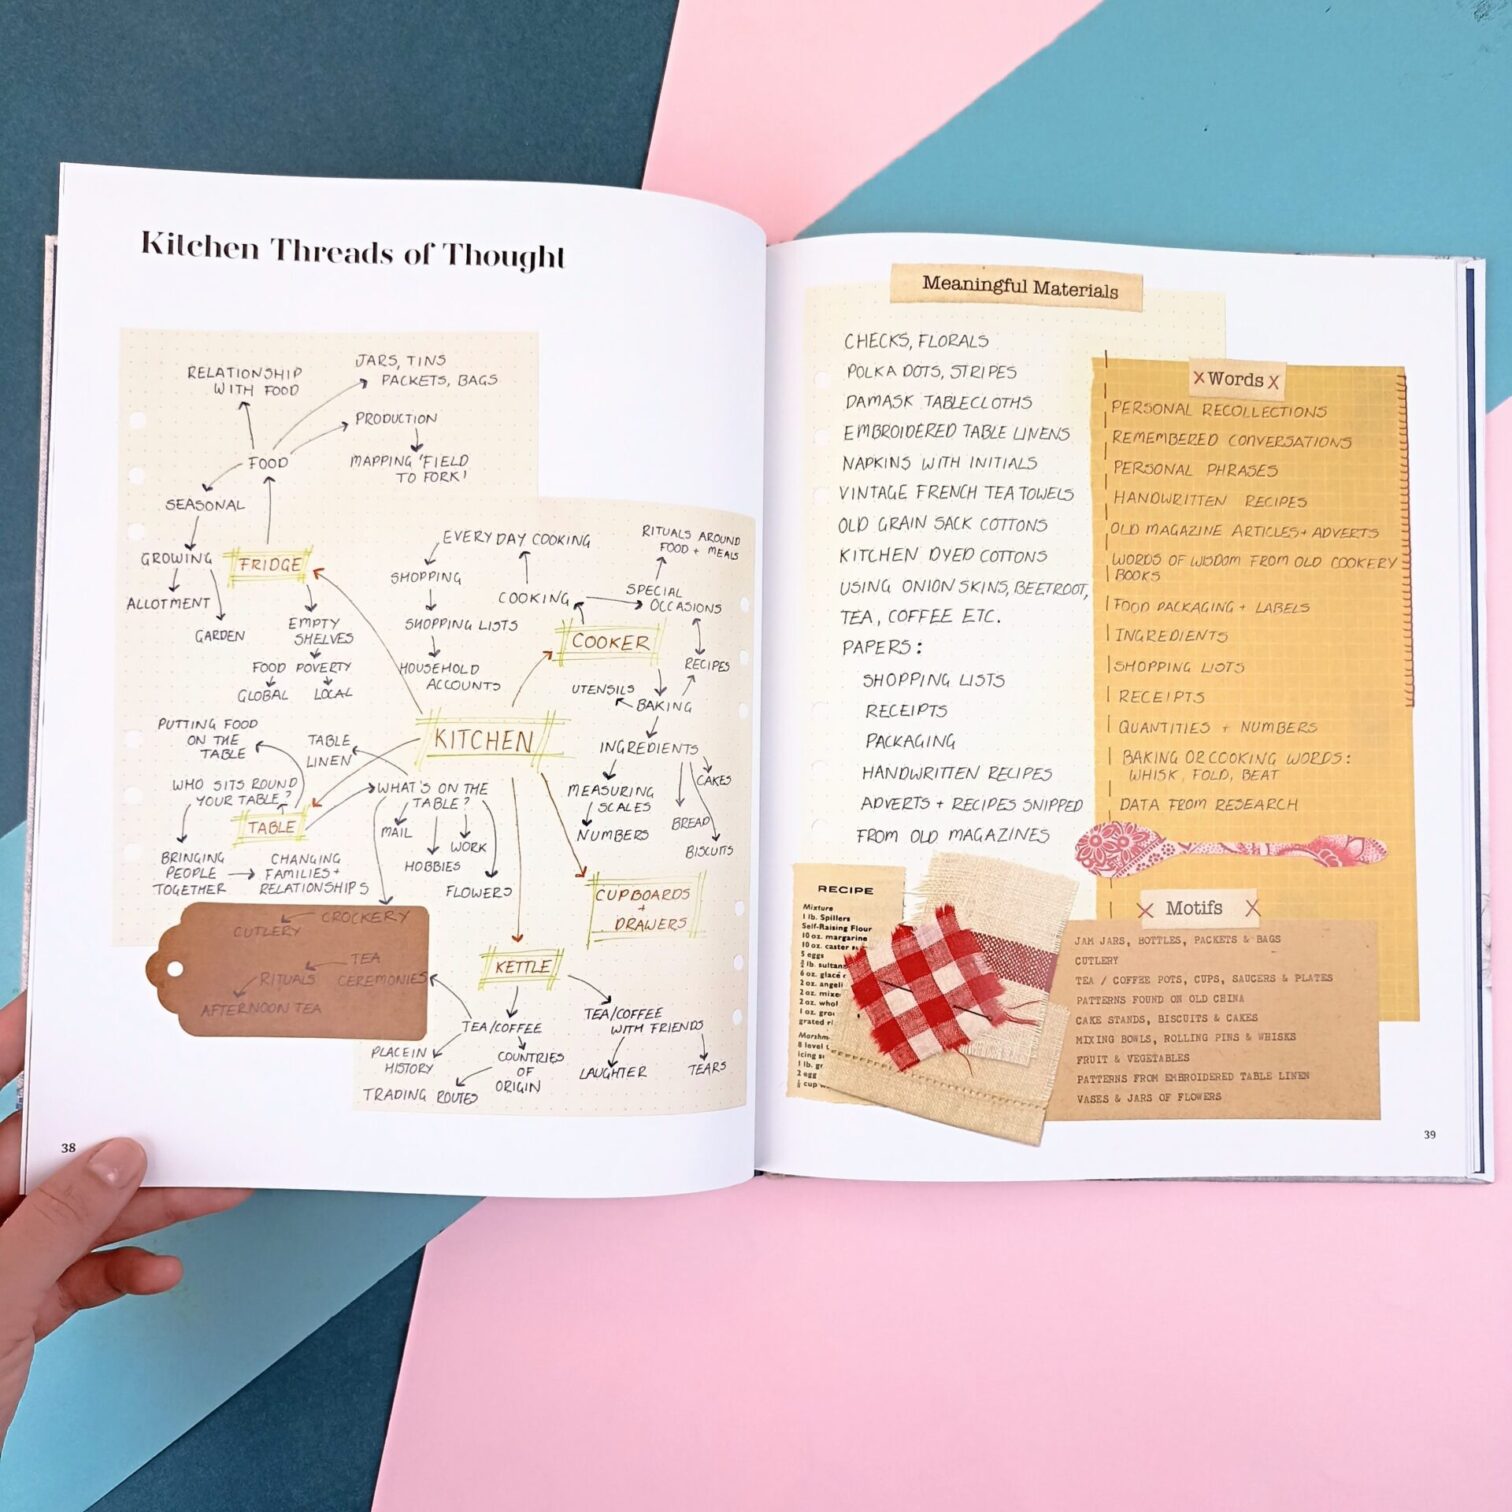 Kitchen Threads of Thought
RELATIONSHIP
WITH FOOD
JARS, TINS
PACKETS, BAGS
PRODUCTION
MAPPING 'FIELD
TO FORK'
FOOD
SEASONAL
GROWING
ALLOTMENT
GARDEN
FRIDGE
EMPTY
SHELVES
FOOD POVERTY
GLOBAL
LOCAL
EVERYDAY COOKING
SHOPPING
SHOPPING LISTS
HOUSEHOLD
ACCOUNTS
COOKING
RITUALS AROUND
FOOD + MEALS
SPECIAL
OCCASIONS
COOKER
RECIPES
UTENSILS
BAKING
INGREDIENTS
CAKES
MEASURING
SCALES
NUMBERS
BREAD
BISCUITS
KITCHEN
PUTTING FOOD
ON THE
TABLE
TABLE
LINEN
WHO SITS ROUND
YOUR TABLE?
WHAT'S ON THE
TABLE?
TABLE
MAIL
WORK
HOBBIES
FLOWERS
BRINGING
PEOPLE
TOGETHER
CHANGING
FAMILIES +
RELATIONSHIPS
CUPBOARDS
+
DRAWERS
CROCKERY
CUTLERY
TEA
RITUALS CEREMONIES
AFTERNOON TEA
KETTLE
TEA/COFFEE
TEA/COFFEE
WITH FRIENDS
PLACE IN
HISTORY
COUNTRIES
OF
ORIGIN
TRADING ROUTES
LAUGHTER
TEARS
38
Meaningful Materials
CHECKS, FLORALS
POLKA DOTS, STRIPES
DAMASK TABLECLOTHS
EMBROIDERED TABLE LINENS
NAPKINS WITH INITIALS
VINTAGE FRENCH TEA TOWELS
OLD GRAIN SACK COTTONS
KITCHEN DYED COTTONS
USING ONION SKINS, BEETROOT,
TEA, COFFEE ETC.
PAPERS:
SHOPPING LISTS
RECEIPTS
PACKAGING
HANDWRITTEN RECIPES
ADVERTS + RECIPES SNIPPED
FROM OLD MAGAZINES
X Words X
PERSONAL RECOLLECTIONS
REMEMBERED CONVERSATIONS
PERSONAL PHRASES
HANDWRITTEN RECIPES
OLD MAGAZINE ARTICLES + ADVERTS
WORDS OF WISDOM FROM OLD COOKERY
BOOKS
FOOD PACKAGING + LABELS
INGREDIENTS
SHOPPING LISTS
RECEIPTS
QUANTITIES + NUMBERS
BAKING OR COOKING WORDS:
WHISK, FOLD, BEAT
DATA FROM RESEARCH
RECIPE
Mixture
1 lb. Spillers
Self-Raising Flour
10 oz. margarine
10 oz. caster
5 eggs
lb. sultan
6 oz. glacé
2 oz. angeli
2 oz. mixe
2 oz. whol
1 oz. gro
grated
Marshm
8 level
icing
1 lb.
2 egg
cup
X Motifs X
JAM JARS, BOTTLES, PACKETS & BAGS
CUTLERY
TEA / COFFEE POTS, CUPS, SAUCERS & PLATES
PATTERNS FOUND ON OLD CHINA
CAKE STANDS, BISCUITS & CAKES
MIXING BOWLS, ROLLING PINS & WHISKS
FRUIT & VEGETABLES
PATTERNS FROM EMBROIDERED TABLE LINEN
VASES & JARS OF FLOWERS
39